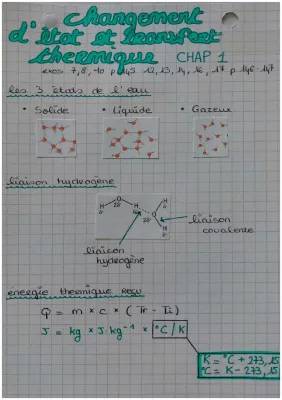 changement
d'état et transfert
thermique CHAP 1
exos 7, 8, 10 p 145 12, 13, 14, 16, 17 p 146-147
les 3 états de l'eau
• Solide • Liquide • Gazeux
liaison hydrogène
H O H O H
H
liaison
covalente
liaison
hydrogène
energie thermique reçu
Q = m × c × (Tf - Ti)
J = kg × J.kg⁻¹ × °C/K
K = °C + 273,15
°C = K - 273,15